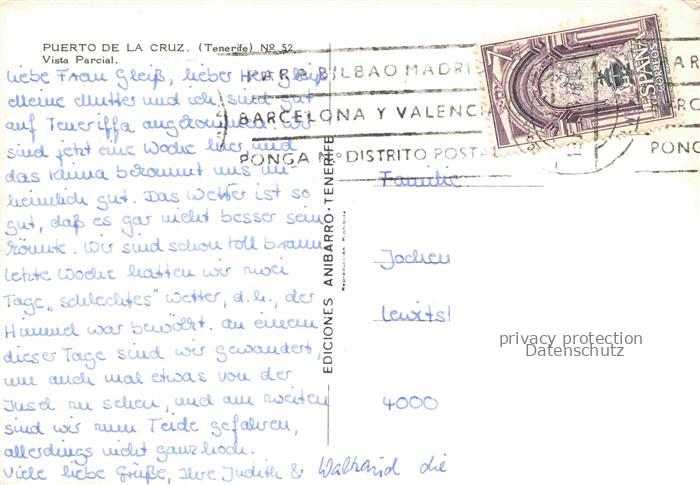 PUERTO DE LA CRUZ. (Tenerife) Nº 52
Vista Parcial.
liebe Frau Gleiß, lieber Herr Gleiß
Meine Mutter und ich sind gut
auf Teneriffa angekommen. Wir
sind jetzt eine Woche hier und
das Klima bekommt uns un-
heimlich gut. Das Wetter ist so
gut, daß es gar nicht besser sein
könnte. Wir sind schon toll braun
letzte Woche hatten wir zwei
Tage „schlechtes" Wetter, d.h., der
Himmel war bewölkt. an einem
dieser Tage sind wir gewandert,
um auch mal etwas von der
Insel zu sehen, und am zweiten
sind wir zum Teide gefahren,
allerdings nicht ganz hoch.
Viele liebe Grüße, Ihre Judith & Waltraud die
EDICIONES ANIBARRO-TENERIFE
Reproducción Prohibida
PARA BILBAO MADRI
BARCELONA Y VALENCI
PONGA Nº DISTRITO POSTA
AR
BARC
PONG
ESPAÑA
CORREOS
Familie
Jochen
4000
privacy protection
Datenschutz